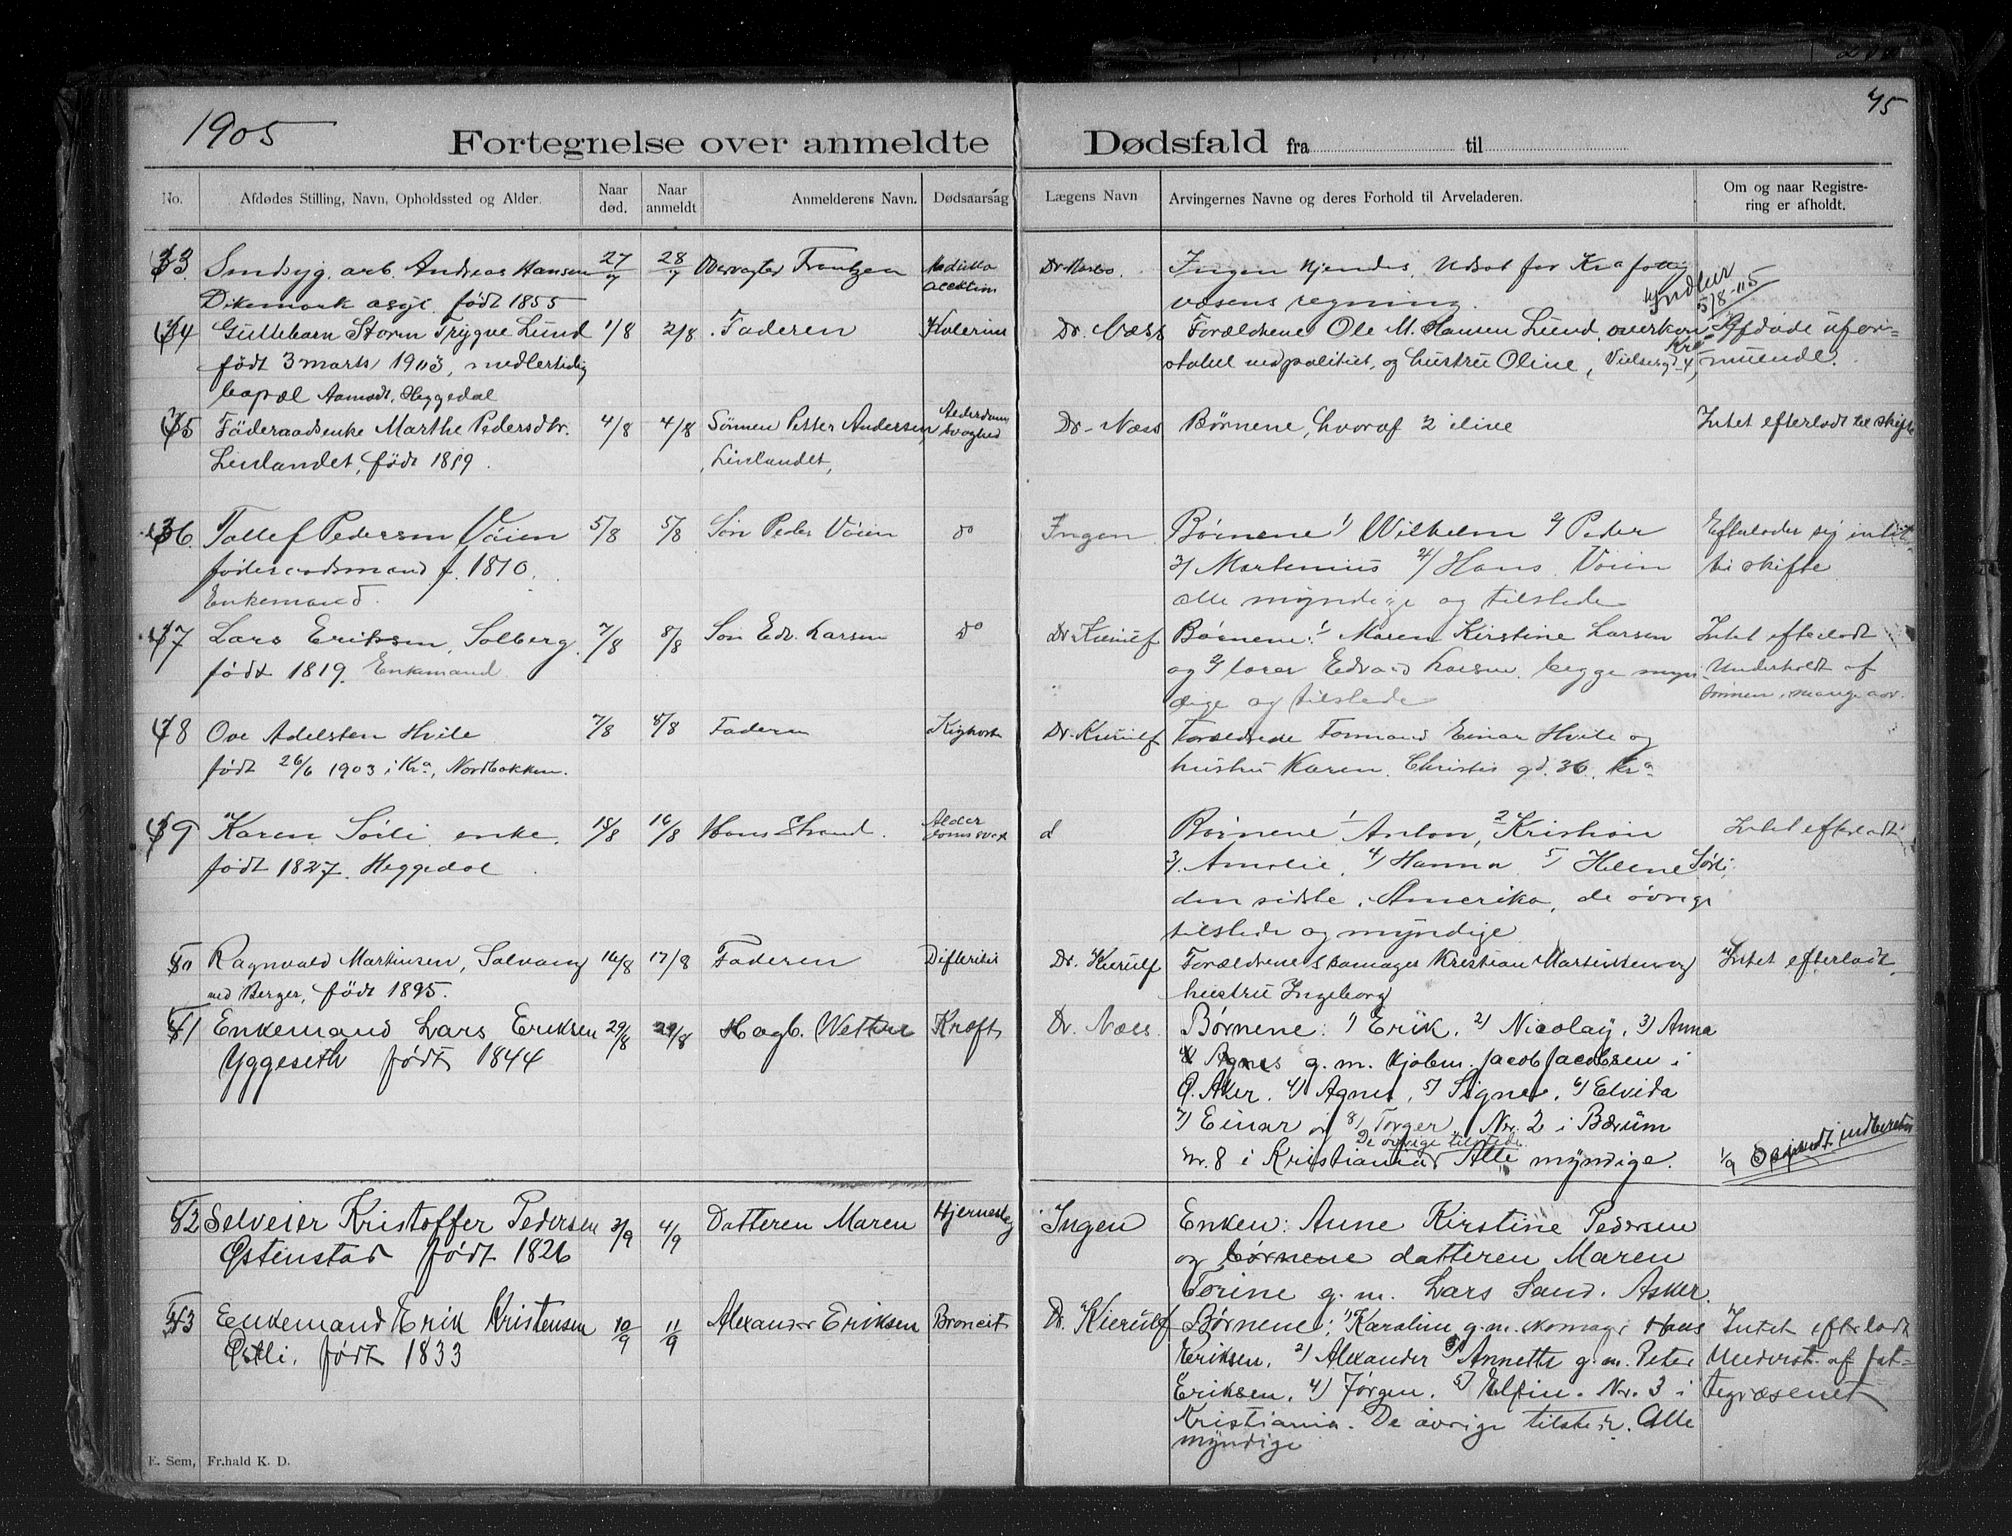 1905
75
Fortegnelse over anmeldte Dødsfald fra til
No.
Afdødes Stilling, Navn, Opholdssted og Alder.
Naar død.
Naar anmeldt
Anmelderens Navn.
Dødsaarsag
Lægens Navn
Arvingernes Navne og deres Forhold til Arveladeren.
Om og naar Registre-
ring er afholdt.
33 Sindsyg. arb. Andreas Hansen 27/7 28/7 Overvagter Frantzen
Dikemark asyl. født 1855
Ingen kjendes. Udsat for Kra fatti
væsens regning.
34 Guttebarn Storm Trygve Lund 1/8 2/8 Faderen Kolerine Dr. Næss Forældrene Ole M. Hansen Lund, overkon
født 3 marts 1903, midlertidig
stabel ved politiet, og hustru Oline,
Heggedal
5/8-05
Afdøde ufor-
muende.
35 Føderaadsenke Marthe Pedersdtr. 4/8 4/8 Sønnen Petter Andersen Alderdoms
svaghed Dr. Næss Børnene, hvoraf 2 ilive Intet efterladt til skifte
Lienlandet, født 1819. Lienlandet,
36. Tollef Pedersen Vøien 5/8 5/8 Søn Peder Vøien do Ingen Børnene 1) Wilhelm 2) Peder Efterlader sig intet
føderaadsmand f. 1810. 3) Martenius 4) Hans Vøien til skifte
Enkemand. alle myndige og tilstede
37 Lars Eriksen, Solberg. 7/8 8/8 Søn Edv. Larsen do Dr Kierulf Børnene: 1) Maren Kirstine Larsen Intet efterladt
født 1819. Enkemand og 2) Edvard Larsen. begge myn Underholdt af
dige og tilstede sønnen, mange aar.
38 Ove Adelsten Hvile 7/8 8/8 Faderen Kighoste Dr. Kierulf Forældrene Formand Einar Hvile og
født 26/6 1903 i Kra, Nordbakken. hustru Karen. Christies gd. 36. Kra
39 Karen Sørli enke. 15/8 16/8 Hans Strand. Alder
doms svag d Børnene 1) Anton, 2) Kristian Intet efterladt
født 1827. Heggedal 3) Amalie, 4) Hanna 5) Helene Sørli,
den sidste i Amerika, de øvrige
tilstede og myndige
40 Ragnvald Martinsen, Solvang 16/8 17/8 Faderen Difteritis Dr. Kierulf Forældrene Skomager Kristian Martinsen og Intet efterladt.
ved Berger, født 1895. hustru Ingeborg
41 Enkemand Lars Eriksen 29/8 29/8 Hagb. Wettre Kræft Dr. Næss. Børnene: 1) Erik, 2) Nicolay, 3) Anna
Yggeseth født 1844 Agnes g. m. Kjøbm. Jacob Jacobsen i
Ø. Aker. 4) Agnes, 5) Signe, 6) Elvida
7) Einar og 8) Torger. Nr. 2 i Bærum
De øvrige tilstede
nr. 8 i Kristiania Alle myndige.
1/9
42 Selveier Kristoffer Pedersen 3/9 4/9 Datteren Maren Hjerneslag Ingen Enken: Anne Kirstine Pedersen
Østenstad født 1826 og børnene datteren Maren
Torine g. m. Lars Sand. Asker.
43 Enkemand Erik Kristensen 10/9 11/9 Alexander Eriksen Broncit Dr. Kierulf Børnene: 1) Karoline g. m. skomag. Hans Intet efterladt
Østli. født 1833 Eriksen, 2) Alexander 3) Annette g. m. Peter Underst. af fat-
Eriksen, 4) Jørgen, 5) Elfin. Nr. 3 i tigvæsenet
Kristiania. De øvrige tilstede. Alle
myndige
E. Sem, Fr.hald K. D.